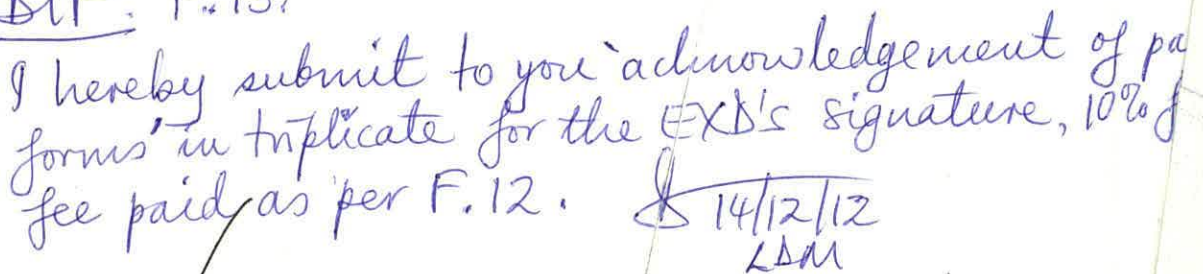 I hereby submit to you 'acknowledgement of pa
forms' in triplicate for the EXD's signature, 10% of
fee paid, as per F.12. 14/12/12
LDM